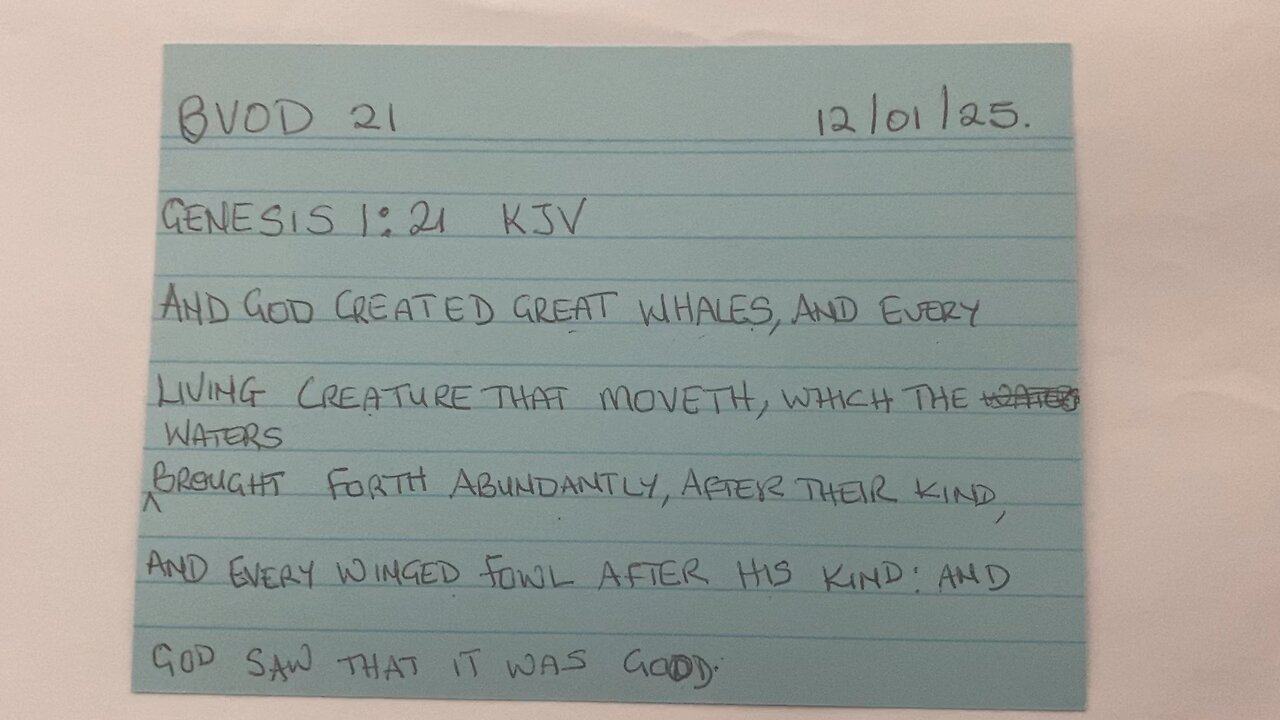 BVOD 21 12/01/25.
GENESIS 1:21 KJV
AND GOD CREATED GREAT WHALES, AND EVERY
LIVING CREATURE THAT MOVETH, WHICH THE
WATERS
^BROUGHT FORTH ABUNDANTLY, AFTER THEIR KIND,
AND EVERY WINGED FOWL AFTER HIS KIND: AND
GOD SAW THAT IT WAS GOOD.